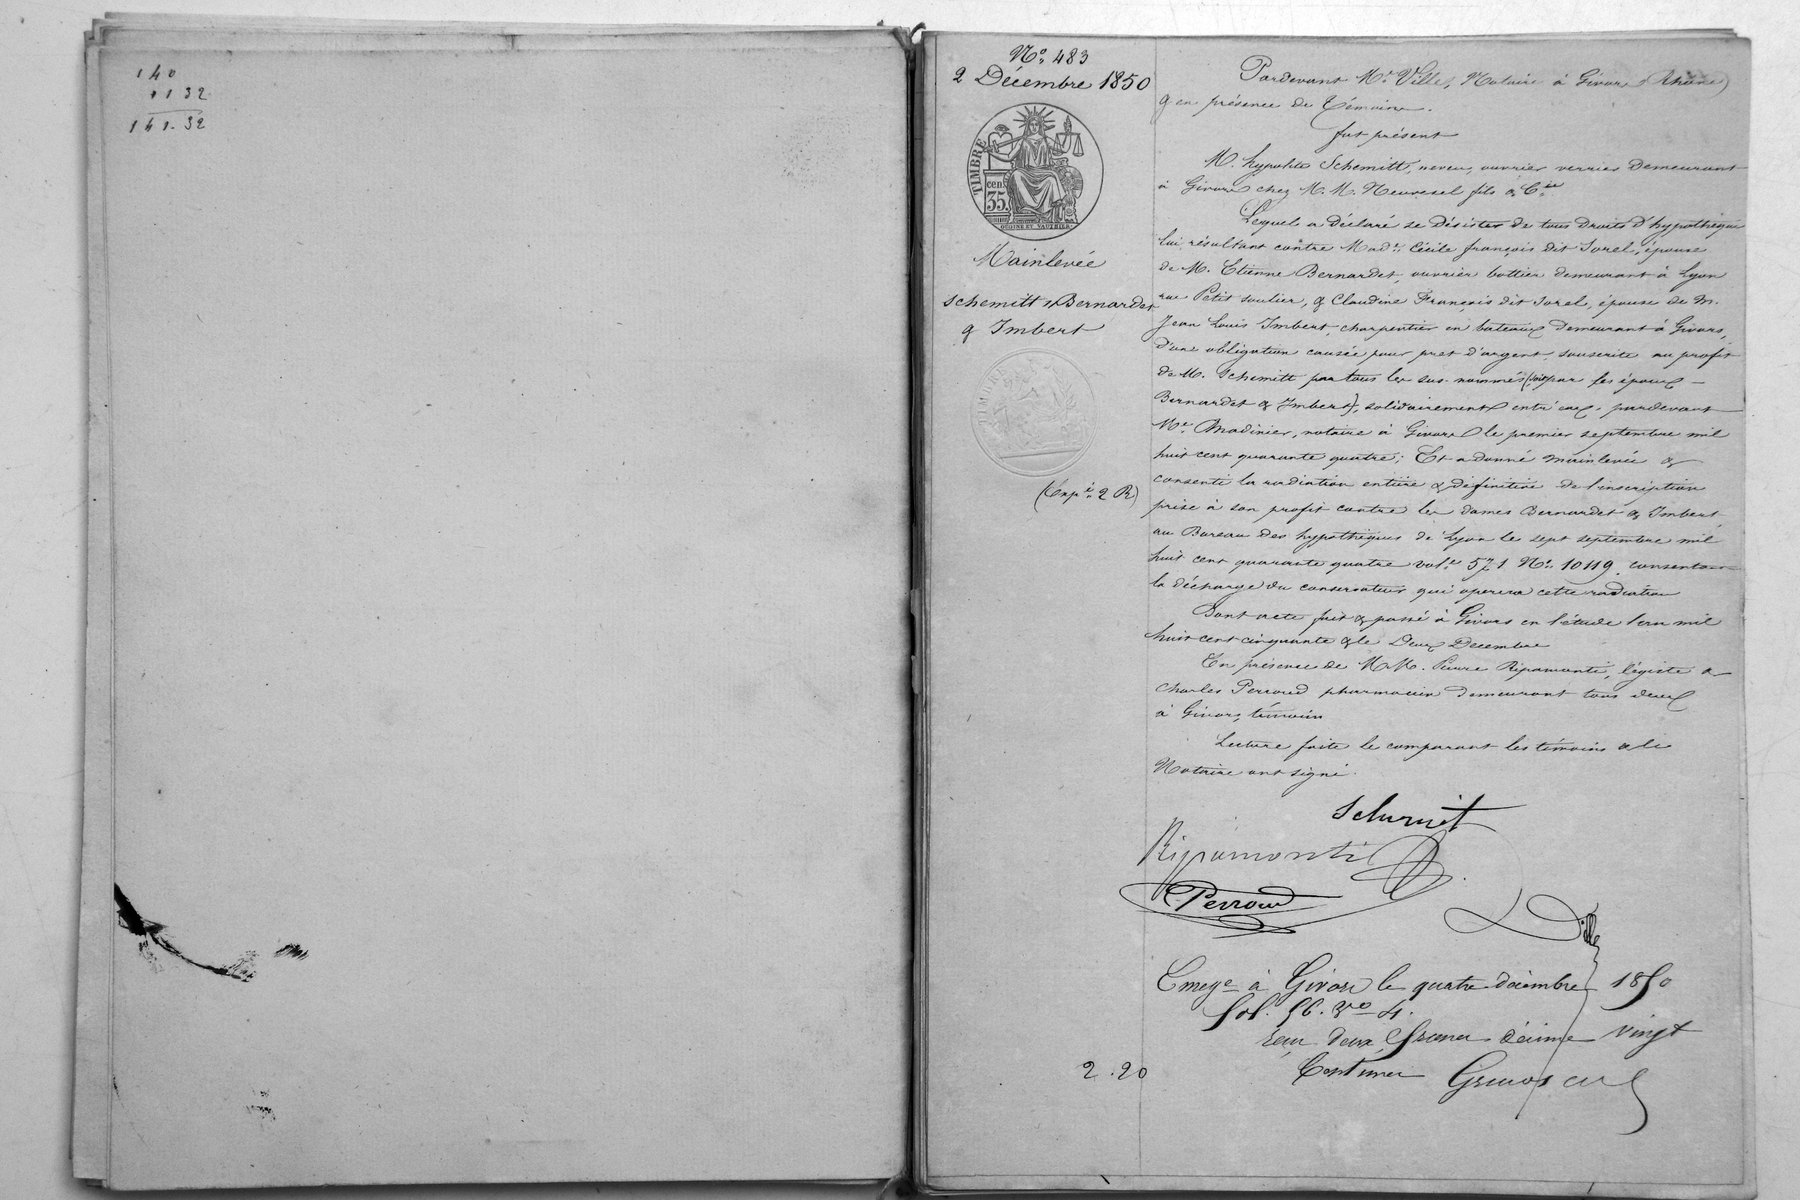 140
1 32
141.32
No. 483
2 Décembre 1850
TIMBRE
cen.
35.
OUDINE ET VAUTHIER.
Mainlevée
Schemitt, Bernardet
& Imbert
TIMBRE
2 R)
2.20
Pardevant Me Ville, Notaire à Givors (Rhône)
& en présence de témoins.
fut présent
M. hypolite Schemitt, neveu, ouvrier verrier demeurant
à Givors chez M. M. Neuvesel fils & Cie
Lequel a déclaré se désister de tous droits d'hypothèque
lui résultant contre Made Cécile françois dit Sorel, épouse
de M. Etienne Bernardet, ouvrier bottier demeurant à Lyon
rue Petit soulier, & Claudine François dit Sorel, épouse de M.
Jean Louis Imbert, charpentier en bateaux demeurant à Givors,
d'une obligation causée pour pret d'argent, souscrite au profit
de M. Schemitt par tous les sus-nommés (soit par les époux
Bernardet & Imbert), solidairement entr'eux, pardevant
Me Madinier, notaire à Givors le premier septembre mil
huit cent quarante quatre; Et a donné mainlevée &
consenti la radiation entière & définitive de l'inscription
prise à son profit contre les dames Bernardet & Imbert
au Bureau des hypothèques de Lyon le sept septembre mil
huit cent quarante quatre vole 571 No. 10119, consentant
la décharge du conservateur qui operera cette radiation
Dont acte fait & passé à Givors en l'étude l'an mil
huit cent cinquante & le Deux Decembre
En présence de M. M. Pierre Ripamonti, légiste &
Charles Perroud pharmacien demeurant tous deux
à Givors, témoins
Lecture faite le comparant les témoins & le
Notaire ont signé.
Schemit
Ripamonti
Perroud
Ville
à Givors le quatre décembre 1850
fol. 56. Vo 4.
reçu deux francs décime vingt
Centimes